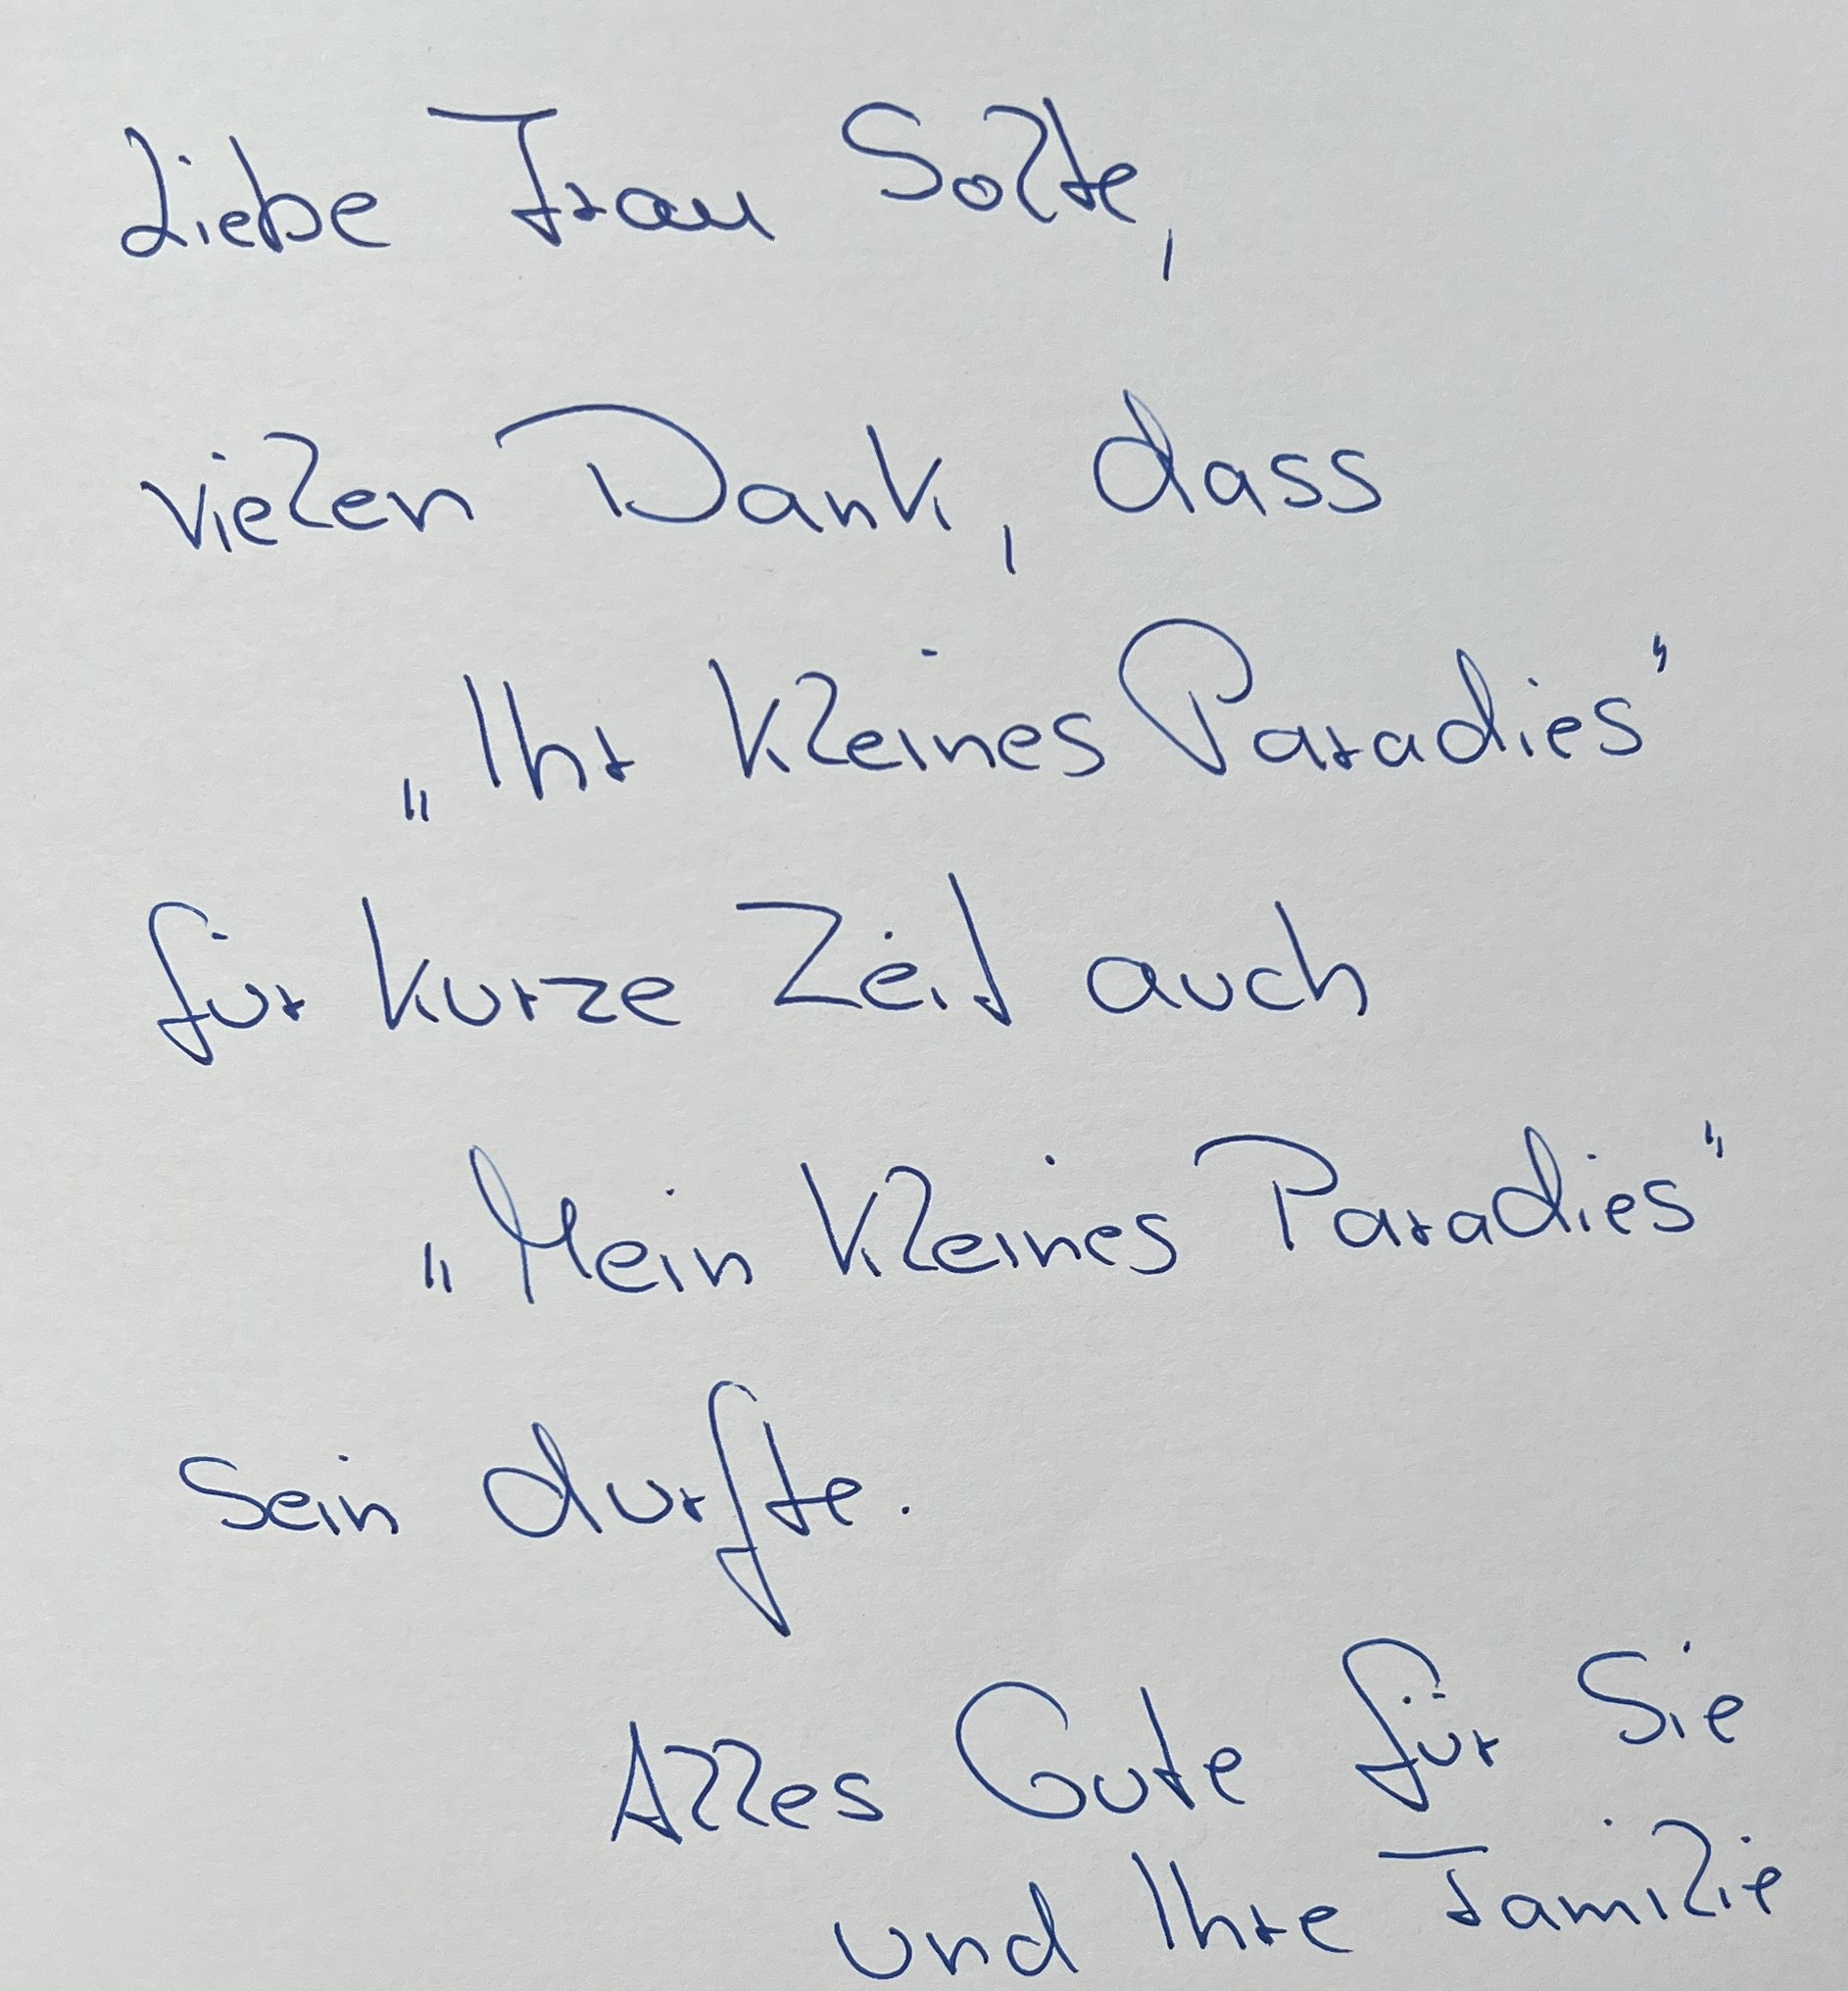 Liebe Frau Solte,
vielen Dank, dass
„Ihr kleines Paradies"
für kurze Zeit auch
„Mein kleines Paradies"
sein durfte.
Alles Gute für Sie
und Ihre Familie